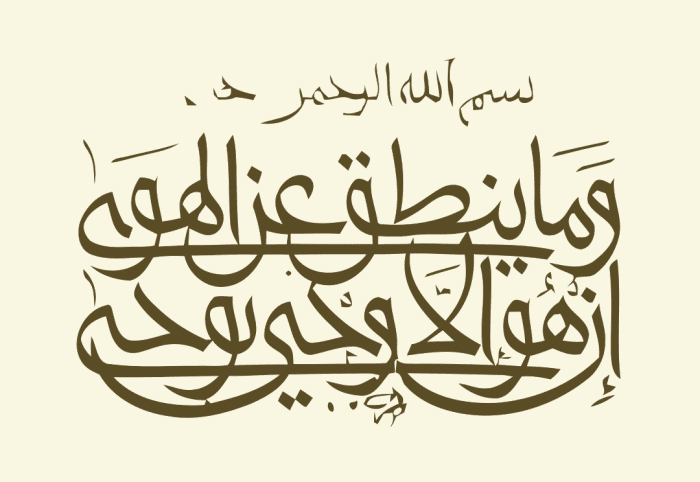 بسم الله الرحمن
وَما ينطق عن الهوَى
إن هُوَ إلَّا وَحْي يوحى